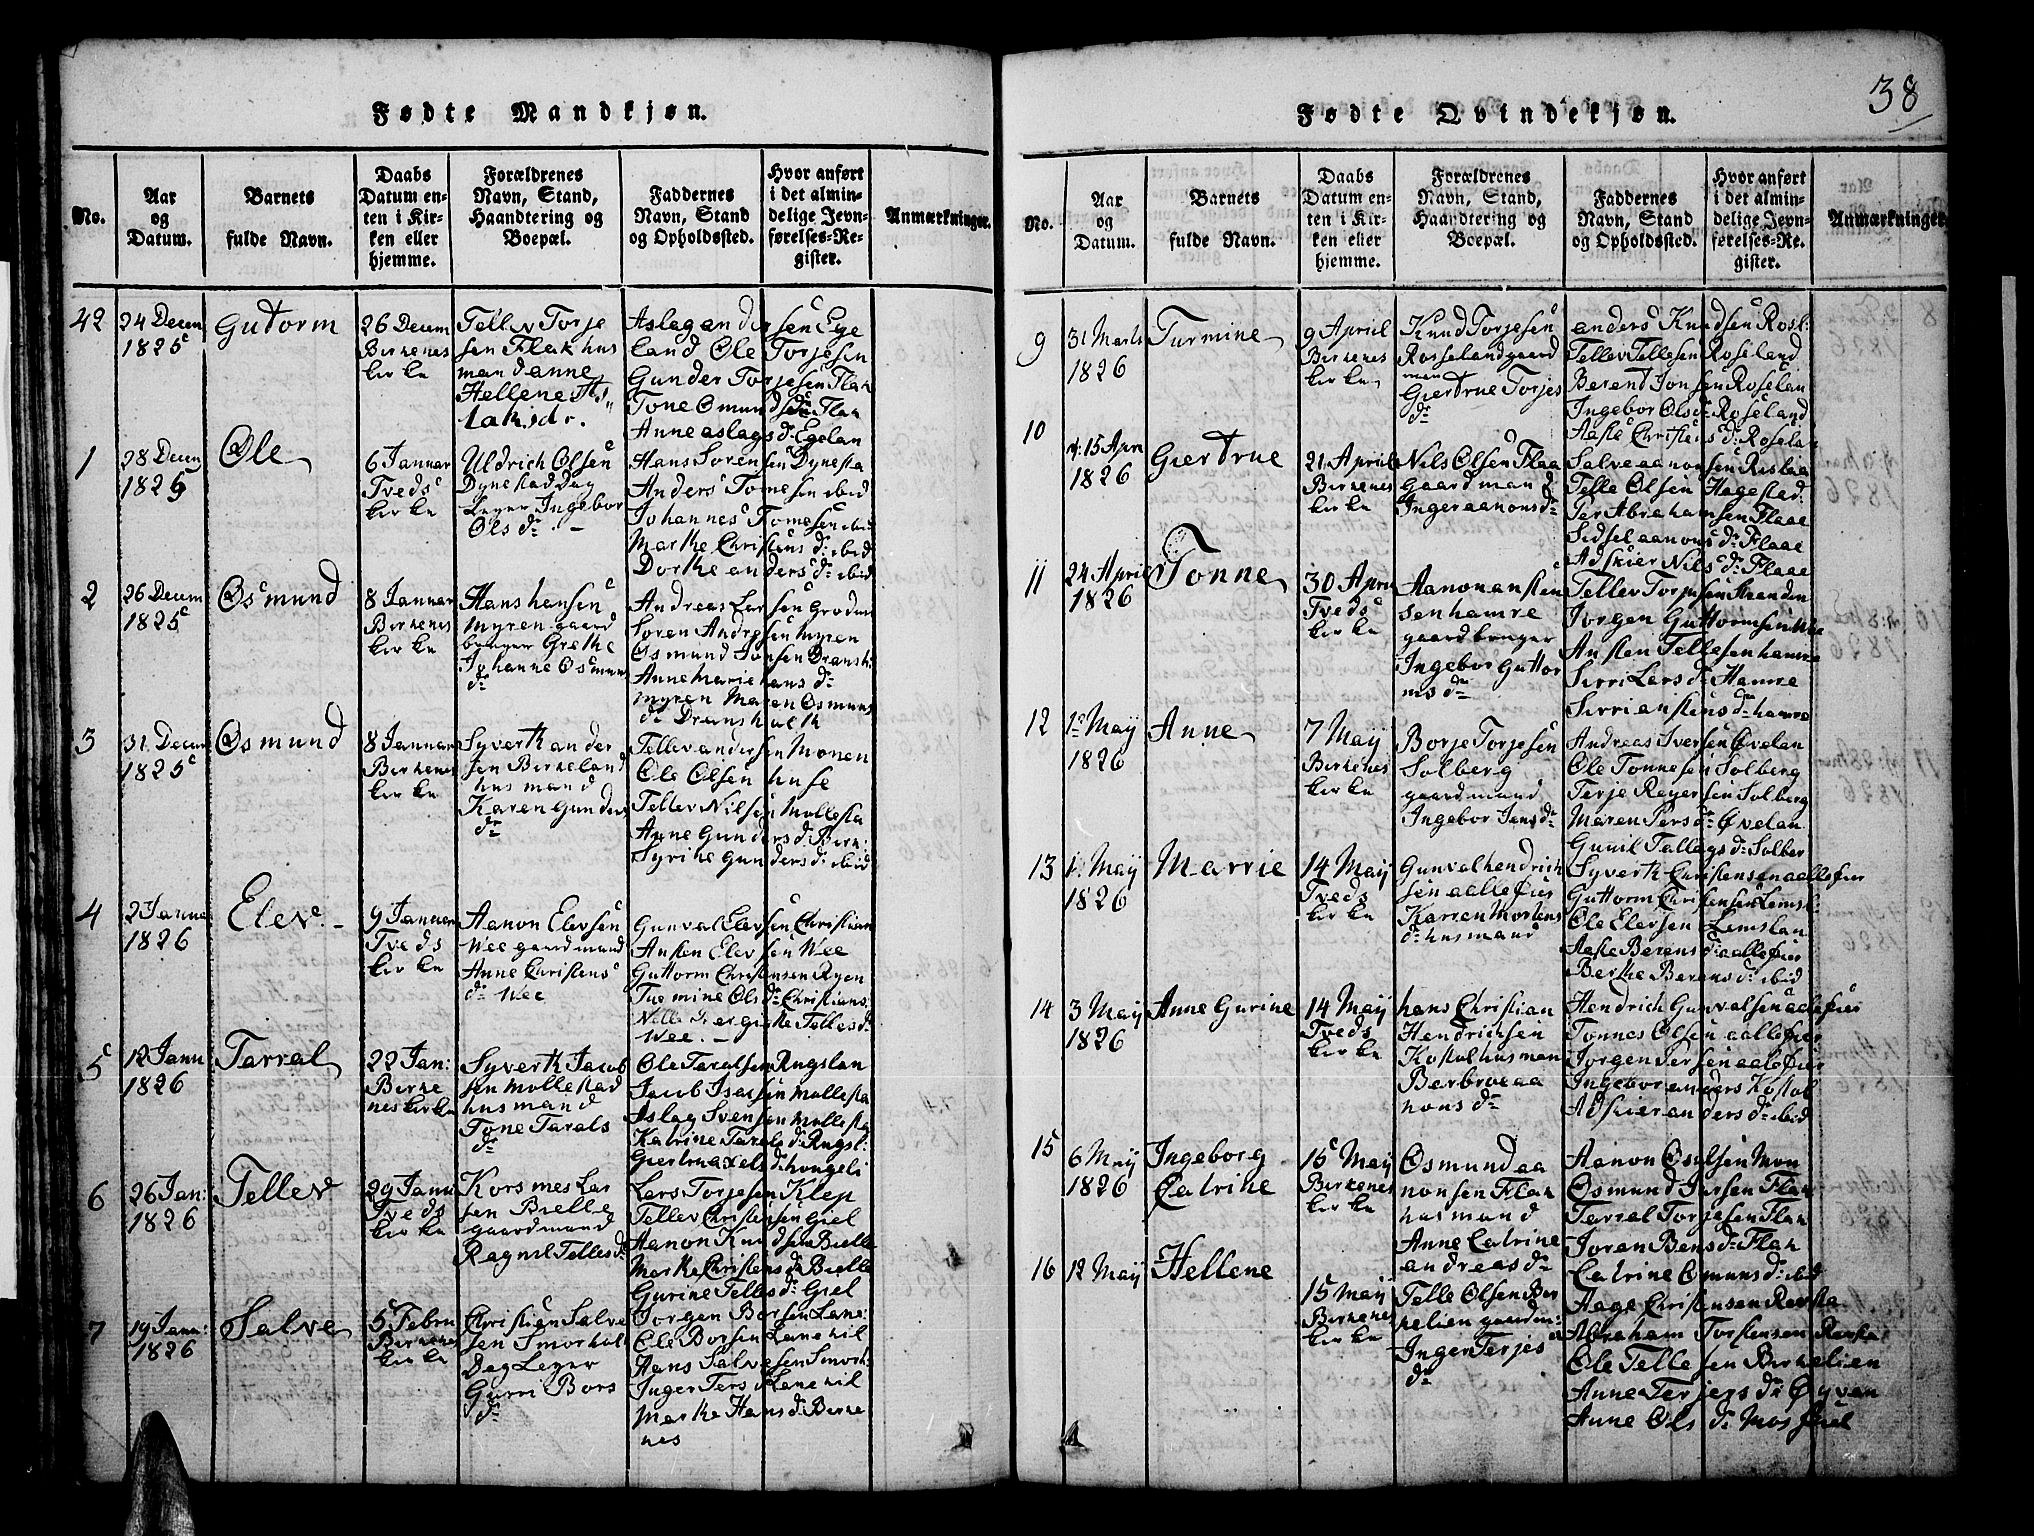 38
Fødte Mandkjøn.
No.
Aar
og
Datum.
Barnets
fulde Navn.
Daabs
Datum en-
ten i Kir-
ken eller
hjemme.
Forældrenes
Navn, Stand,
Haandtering og
Boepæl.
Faddernes
Navn, Stand
og Opholdssted.
Hvor anført
i det almin-
delige Jevn-
førelses-Re-
gister.
Anmærkninger.
42
24 Decem
1825
Gutorm
26 Decem
Birkenes
kirke
Tellev Torje
sen Flak hus
mand anne
Hellene As
laksdr.
Aslag andersen Ege
land Ole Torjesen
Gunder Torjesen Flak
Tone Omunds dr Flak
Anne aslags dr Egelan
1
28 Decem
1825
Ole
6 Januar
Tveds
kirke
Uldrich Olsen
Dynestad Dag
Leger Ingebor
Ols dr. -
Hans Sørensen Dynesta
Anders Tomesen ibid
Johannes Tomesen ibid
Marthe Christens dr ibid
Dorthe anders dr ibid
2
26 Decem
1825
Osmund
8 Januar
Birkenes
kirke
Hans hansen
myren gaard
bruger Grethe
Johanne Osmun
dr
Andreas Larsen Groden
Søren Andresen Myren
Osmund Jonsen Dransh:
Anne Marie hans dr
myren Maren Osmuns
dr Dransholt
3
31 Decem
1825
Osmund
8 Januar
Birkenes
kirke
Syverth ander
sen Birkeland
husmand
Karen Gunders
dr
Tellev andersen Monen
Ole Olsen huse
Tellev Nilsen Mollesta
Anne Gunders dr Birk:
Syrihe Gunders dr ibid
4
2 Janua
1826
Elev. -
9 Januar
Tveds
kirke
Aanon Elevsen
Wee gaardmand
Anne Christens
dr Wee
Gunval Elevsen Christian
Austen Elevsen Wee
Guttorm Christensen Ryen
Turmine Ols dr Christians:
Telles dr
Wee. -
5
12 Janu
1826
Tarral
22 Jan:
Birke
nes kirke
Syverth Jacob
sen Mollestad
husmand
Tone Tarals
dr
Ole Taralsen Rugslan
Jacob Isacsen Mollesta
Aslag Svensen Mollesta
Katrine Tarals dr Rugsl:
Giertru axels dr hongeli
6
26 Jan:
1826
Tellev
29 Janu
Tveds
kirke
Kors mes Lar
sen Bielle
gaardmand
Ragnil Telles dr
Lars Torjesen Klep
Tellev Christensen Giel
Aanon Knudsen Bielle
Marthe Christens dr Bielle
Gurine Telles dr Giel
7
19 Janu:
1826
Salve
5 Febru
Birkenes
kirke
Christien Salve
sen Smorhol
Dag Leger
Gurri Bors
dr
Jorgen Borsen Lane:
Ole Borsen Lanekil
Hans Salvesen Smorh:
Inger Ters dr Lanekil
Marthe Hans dr Birke
nes
Fødte Qvindekjøn.
No.
Aar
og
Datum.
Barnets
fulde Navn.
Daabs
Datum en-
ten i Kir-
ken eller
hjemme.
Forældrenes
Navn, Stand,
Haandtering og
Boepæl.
Faddernes
Navn, Stand
og Opholdssted.
Hvor anført
i det almin-
delige Jevn-
førelses-Re-
gister.
Anmærkninger
9
31 Marts
1826
Turmine
9 Apriil
Birkenes
kirke
Knud Torjesen
Rosseland gaard
man
Giertrue Torjes
dr
anders Knudsen Rosl:
Tellev Tellesen Roseland
Berent Jonsen Roselan
Ingebor Ols dr Roseland
Aaste Christens dr Roselan
10
15 Apri
1826
Giertrue
21 Apriil
Birkenes
kirke
Nils Olsen Flaa
gaardmand
Inger aanons dr
Salve aanonsen Rislaa
Telle Olsen Hagestad
Ter Abrahamsen Flaae
Sidsel aanons dr Flaae
Adskier Nils dr Flaae
11
24 Apriil
1826
Tonne
30 Apri
Tveds
kirke
Aanon ansten
sen hamre
gaardbruger
Ingebor Guttor
ms dr
Tellev Torjusen Haanden
Jorgen Guttormsen
Austen Tellesen hamre
Sirri Lars dr Hamre
Sirri anstens dr hamre
12
1 May
1826
Anne
7 May
Birkenes
kirke
Borje Torjesen
Solberg
gaardmand
Ingebor Jens dr
Andreas Iversen Øvelan
Ole Tonnesen Solberg
Terje Reyersen Solberg
Maren Ters dr Øvelan
Gunil Tallags dr Solber
13
1 May
1826
Marrie
14 May
Tveds
kirke
Gunval hendrich
sen aallefier
Karren Mortens
dr husmand
Syverth Christensen aallefier
Guttorm Christensen Lemsl:
Ole Elevsen Lemslan
Aaste Berens dr aallefier
Berthe Berens dr ibid
14
3 May
1826
Anne Gurine
14 May
Tveds
kirke
hans Christian
Hendrichsen
Kostol husman
Berbroe aa
nons dr
Hendrich Gunvalsen aalefier
Tonnes Olsen aallefier
Jorgen Jersen aalefier
Ingebor anders Kostol
Adskier anders dr ibid
15
6 May
1826
Ingeborg
Catrine
15 May
Birkenes
kirke
Osmund aa
nonsen Flak
husmand
Anne Catrine
andreas dr
Aanon Osulsen Mon
Osmund Jersen Flak
Tarral Torjesen Flak
Joran Bens dr Flak
Catrine Omuns dr ibid
16
12 May
Hellene
15 May
Birkenes
kirke
Telle Olsen Bir
kelien gaardm
Inger Terjes
dr
Aage Christensen Revsta
Abraham Torstensen Revsta
Ole Tellesen Birkelien
Anne Terjers dr Øyven
Anne Ols dr Mosfiel